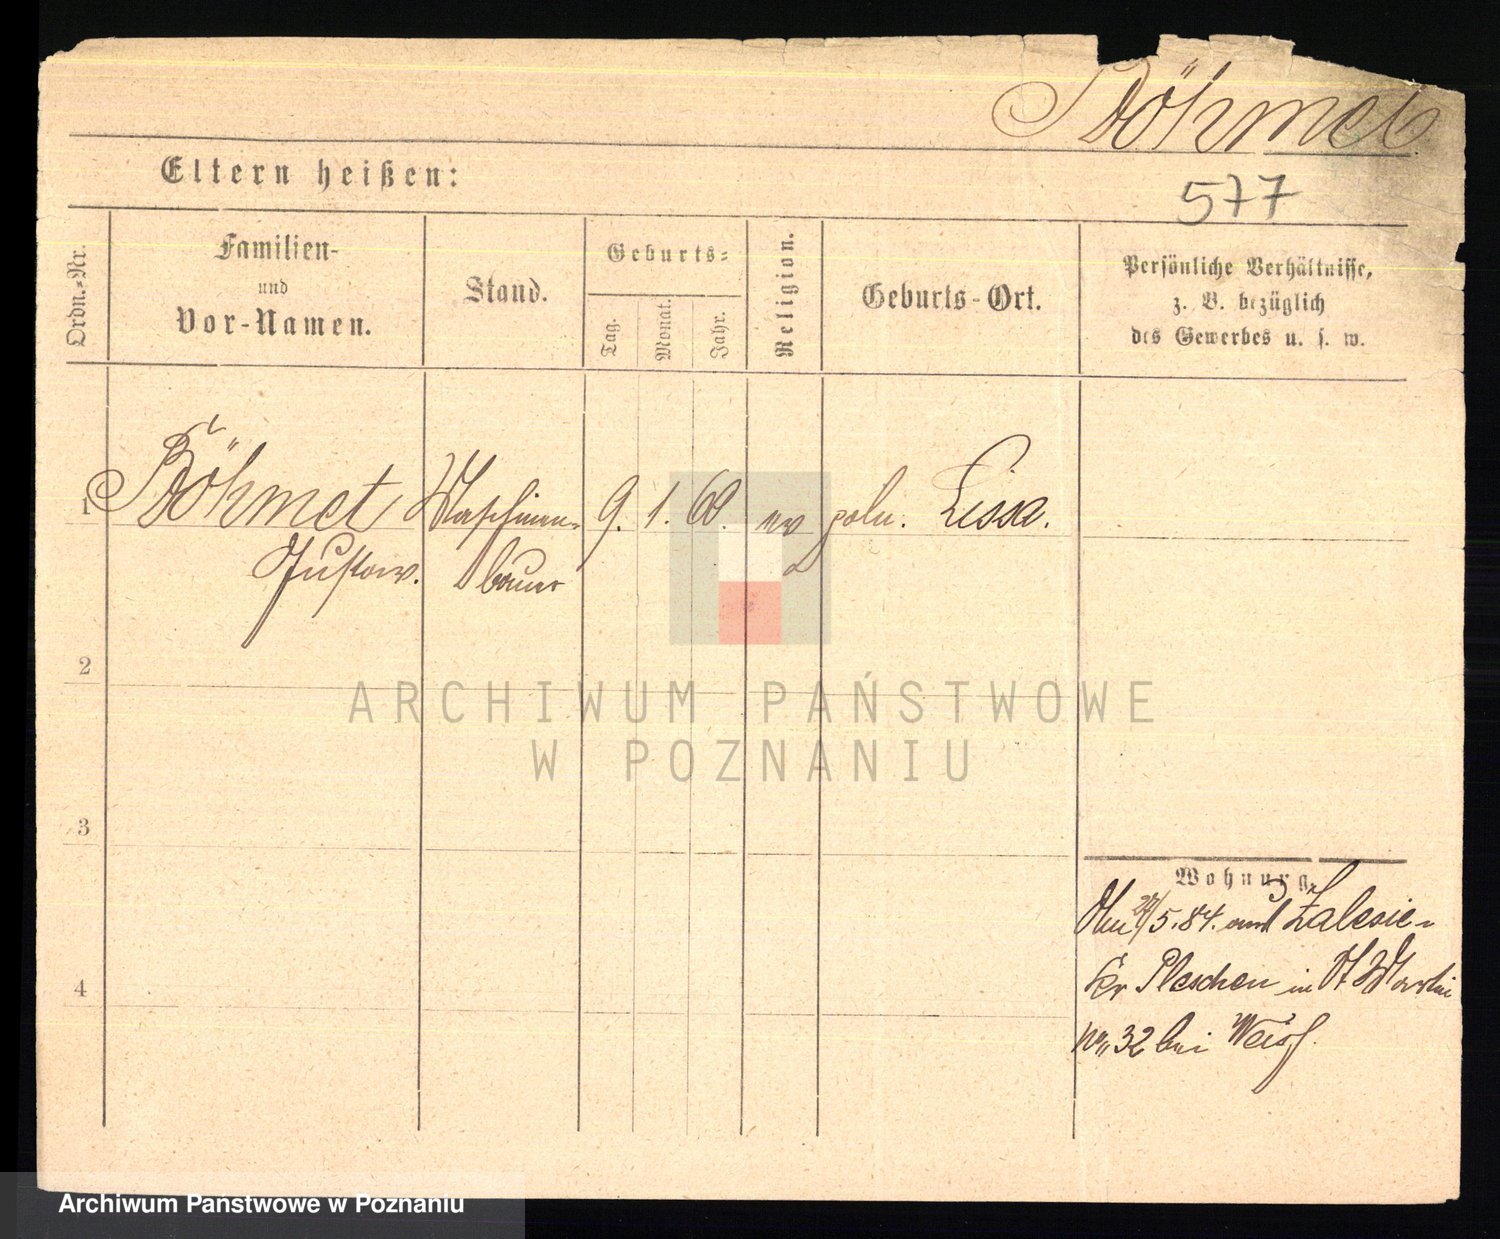 Böhmet
Eltern heißen:
577
Ordn.-Nr.
Familien-
und
Vor-Namen.
Stand.
Geburts-
Tag.
Monat.
Jahr.
Religion.
Geburts-Ort.
Persönliche Verhältnisse,
z. B. bezüglich
des Gewerbes u. s. w.
1 Böhmet Maschinen- 9. 1. 60. ev poln. Lissa.
Gustav. bauer
2
ARCHIWUM PAŃSTWOWE
W POZNANIU
3
Wohnung.
5.84. aus Zalesie-
Kr Pleschen in St Martin
No 32 bei Weiß.
4
Archiwum Państwowe w Poznaniu